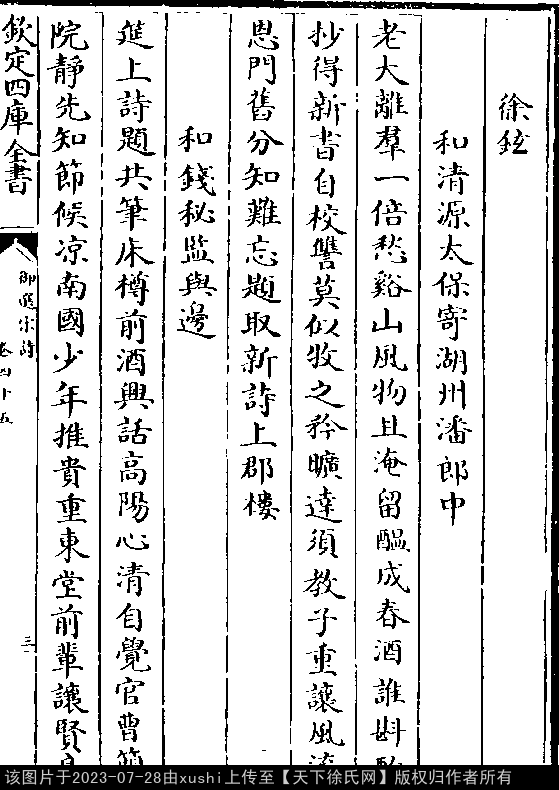 徐鉉
和清源太保寄湖州潘郎中
老大離羣一倍愁谿山風物且淹留醞成春酒誰斟
抄得新書自校讐莫似牧之矜曠達須教子重讓風流
恩門舊分知難忘題取新詩上郡樓
和錢秘監與邊
筵上詩題共筆牀樽前酒興話高陽心清自覺官曹簡
院靜先知節候凉南國少年推貴重東堂前輩讓賢良
欽定四庫全書
御選宋詩
卷四十五
三
该图片于2023-07-28由xushi上传至【天下徐氏网】版权归作者所有